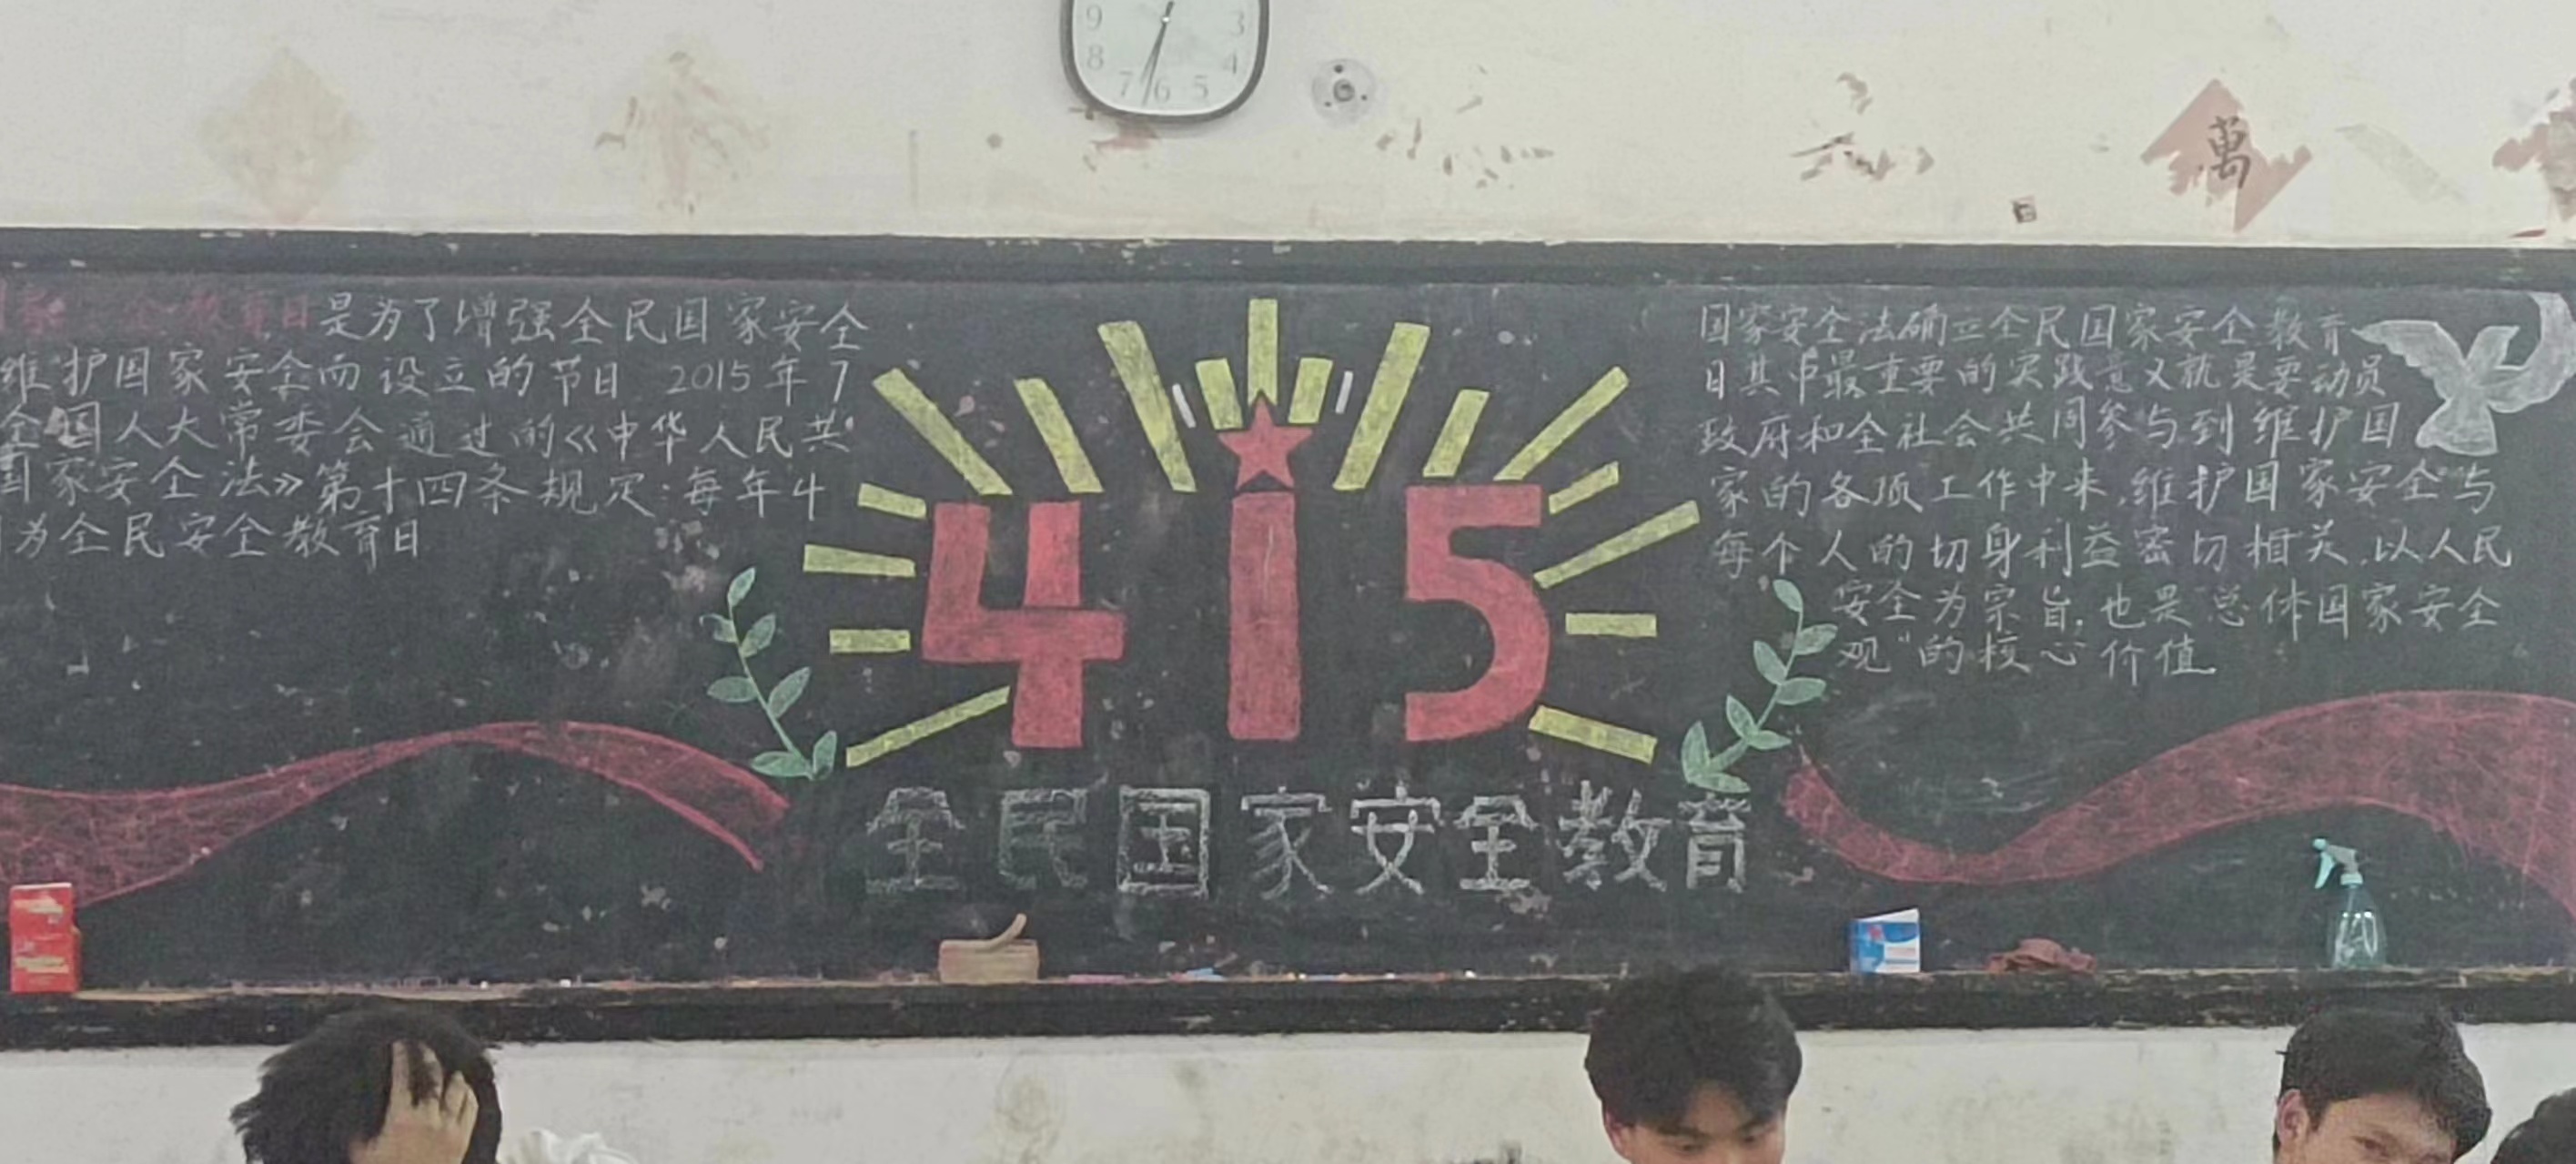 9 3
8 4
7 6 5
萬
家 全教育日是为了增强全民国家安全
维护国家安全而设立的节日 2015年7
全国人大常委会通过的《中华人民共
国家安全法》第十四条规定:每年4
为全民安全教育日
415
全民国家安全教育
国家安全法确立全民国家安全教育
日其中最重要的实践意义就是要动员
政府和全社会共同参与到维护国
家的各项工作中来,维护国家安全与
每个人的切身利益密切相关,以人民
安全为宗旨,也是"总体国家安全
观"的核心价值